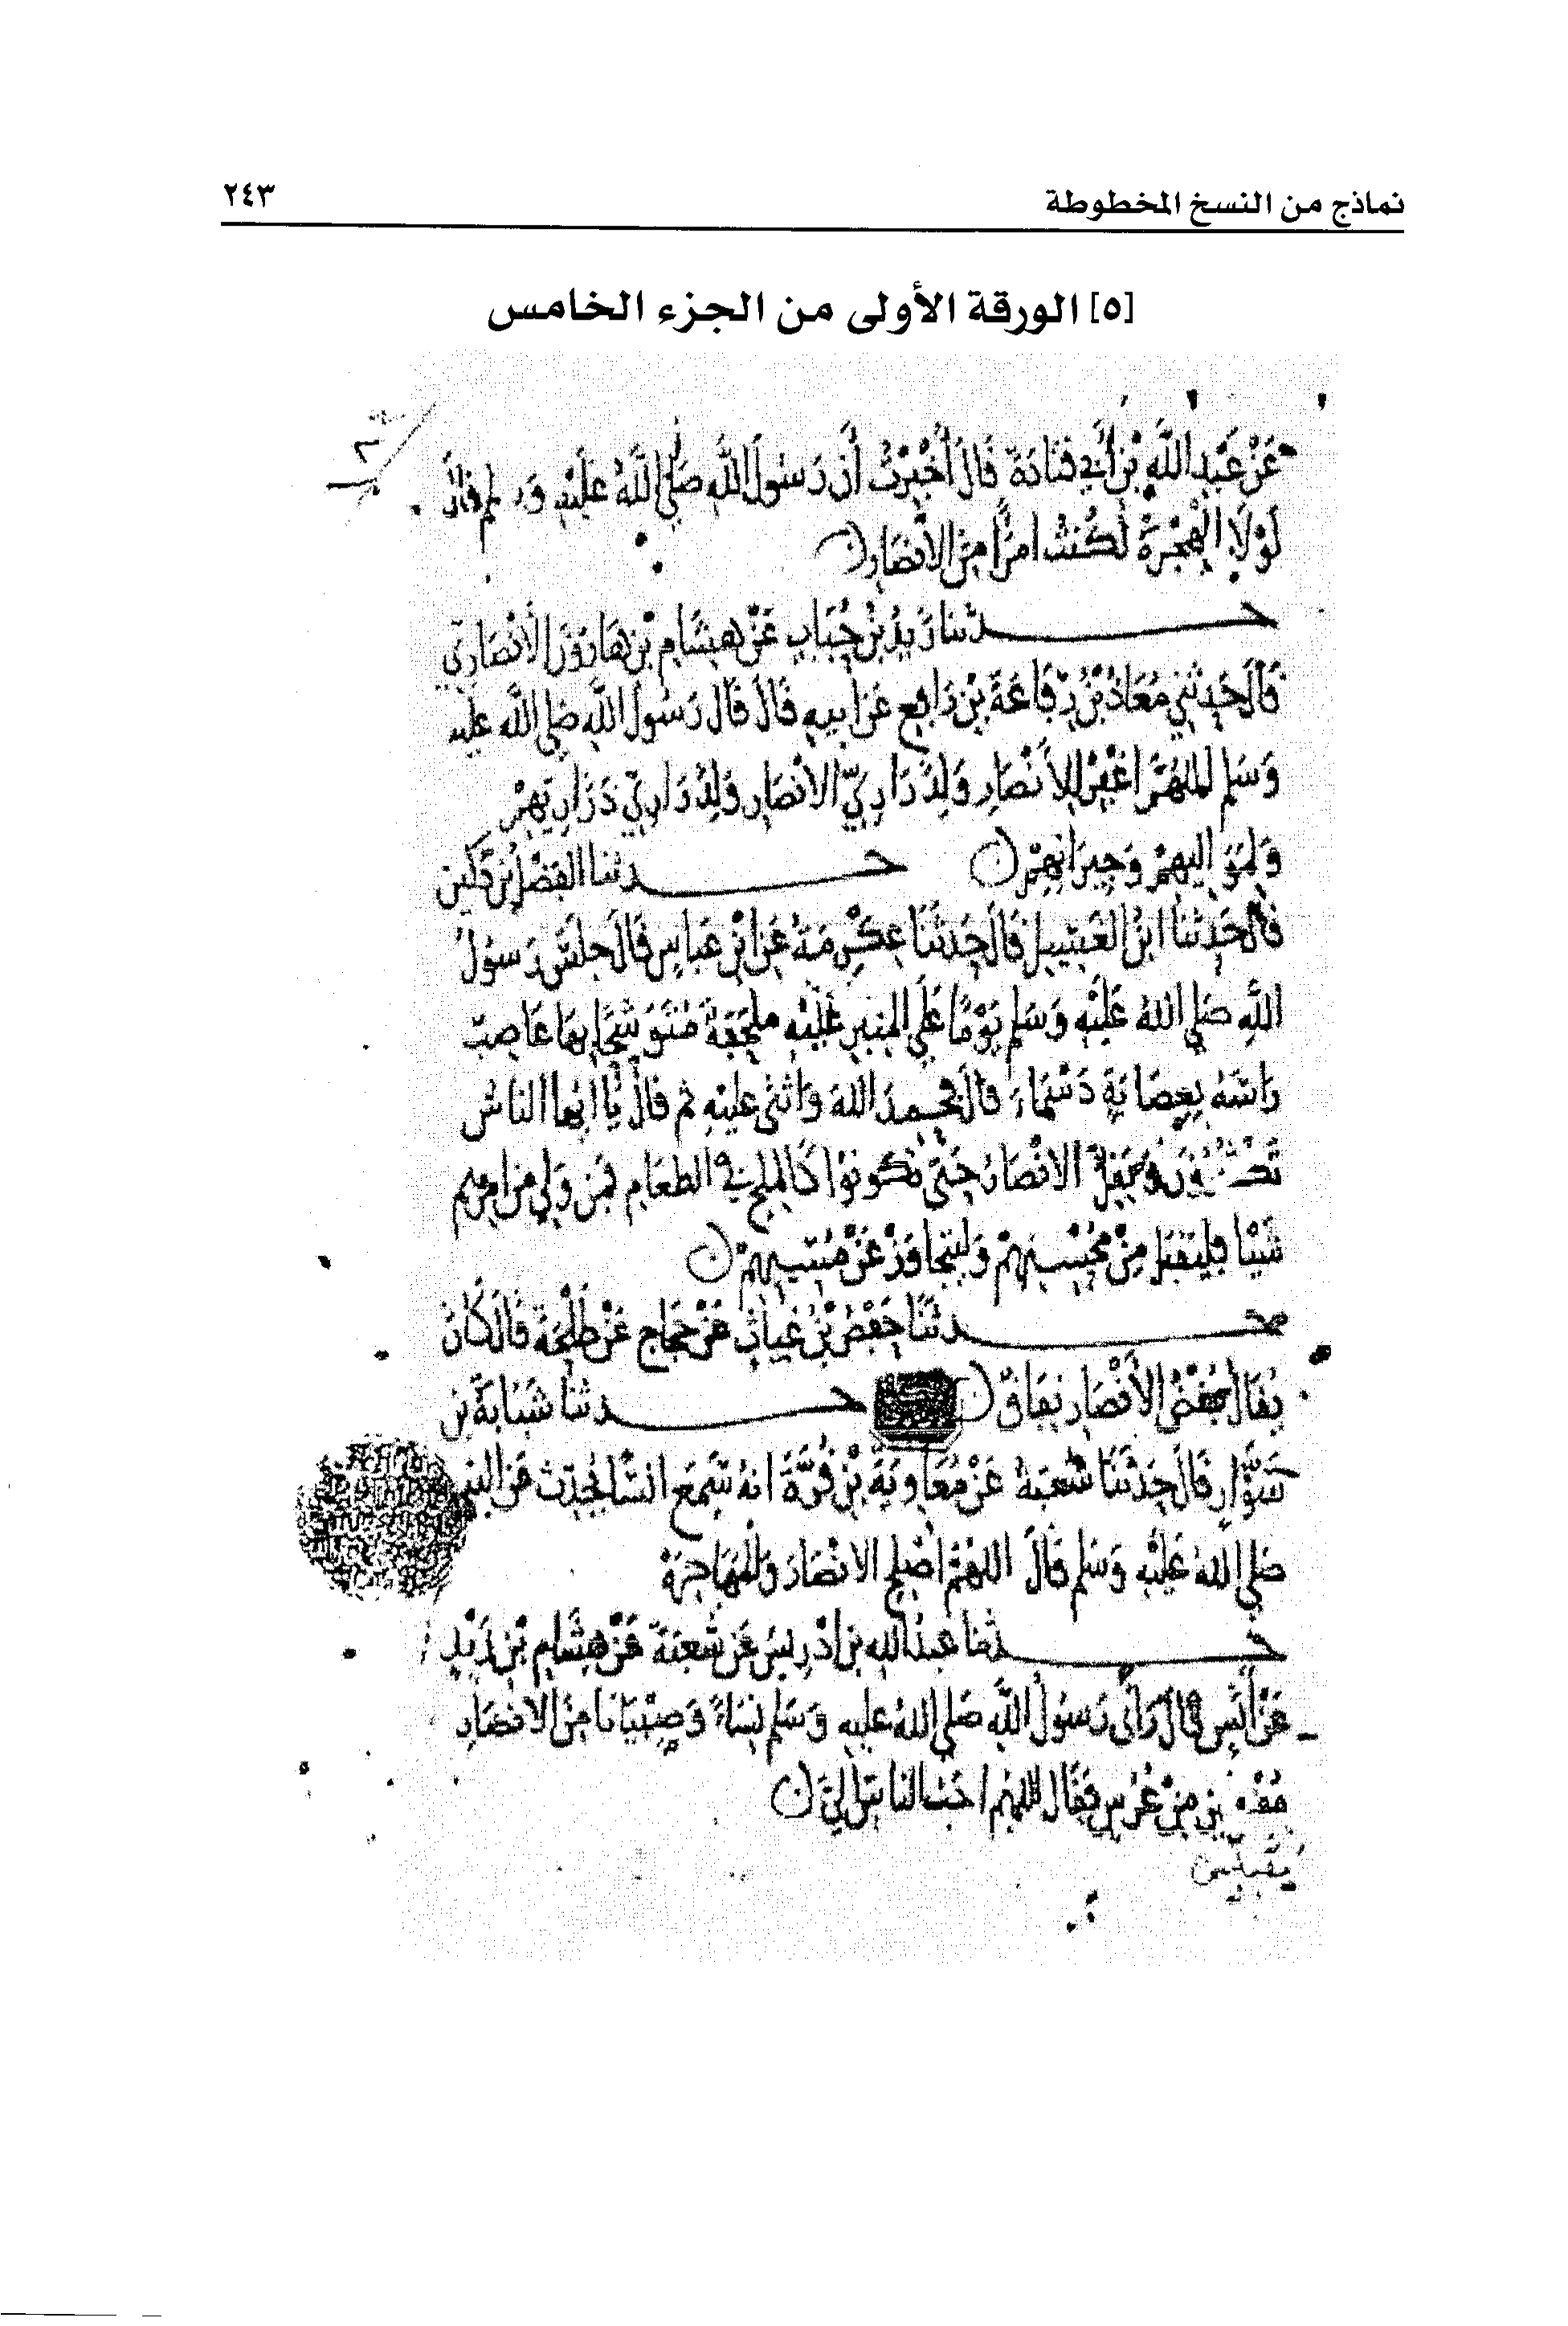 نماذج من النسخ المخطوطة ٢٤٣
[٥] الورقة الأولى من الجزء الخامس
عَنْ عَبْدِ اللَّهِ بْنِ أَبِي قَتَادَةَ قَالَ أُخْبِرْتُ أَنَّ رَسُولَ اللَّهِ صَلَّى اللَّهُ عَلَيْهِ وَسلم قَالَ
لَوْلَا الْهِجْرَةُ لَكُنْتُ امْرَأً مِنَ الْأَنْصَارِ
حدثنا زَيْدُ بْنُ حُبَابٍ عَنْ هِشَامِ بْنِ هَارُونَ الْأَنْصَارِيِّ
قَالَ حَدَّثَنِي مُعَاذُ بْنُ رِفَاعَةَ بْنِ رَافِعٍ عَنْ أَبِيهِ قَالَ قَالَ رَسُولُ اللَّهِ صلى الله عليه
وَسَلم اللهُمَّ اغْفِرْ لِلْأَنْصَارِ وَلِذَرَارِيِّ الْأَنْصَارِ وَلِذَرَارِيِّ ذَرَارِيهِمْ
وَلِمَوَالِيهِمْ وَجِيرَانِهِمْ حدثنا الفَضْلُ بْنُ دُكَيْن
قَالَ حَدَّثَنَا ابْنُ الْغَسِيلِ قَالَ حَدَّثَنَا عِكْرِمَةُ عَنِ ابْنِ عَبَّاسٍ قَالَ جلَسَ رَسُولُ
اللَّهِ صَلَى اللهُ عَلَيْهِ وَسَلم يَوْمًا عَلَى المِنْبَرِ عَلَيْهِ مِلْحَفَةٌ مُتَوَشِّحًا بِهَا عَاصِبٌ
رَأسَهُ بِعِصَابَةٍ دَسْمَاءَ قَالَ فحمدَ اللهَ وَأثْنَى عليْهِ ثم قَالَ يَا أيها الناسُ
تَكْثُرُونَ وَيَقِلُّ الأنْصَارُ حَتَّى تَكُونُوا كَالمِلحِ في الطعَامِ فمَن وَلِيَ مِن أمرِهِم
شَيْئا فليَقْبَل مِنْ مُحْسِنِهِمْ وَليَتَجَاوَزْ عَنْ مُسِيئِهِمْ
حدثَنَا حَفْصُ بْنُ غِيَاثٍ عَنْ حَجَّاجٍ عَنْ طَلْحَةَ قَالَ كَانَ
يُقَالُ بُغْضُ الأَنْصَارِ نِفَاقٌ حدثنا شَبَابَةُ بْن
سَوَّارٍ قَالَ حَدَّثَنَا شُعْبَةُ عَنْ مُعَاوِيَةَ بْنِ قُرَّةَ أنهُ سَمِعَ أنَسًا يُحَدِّثُ عَنِ النبي
صَلى اللهُ عَلَيْهِ وَسَلم قَالَ اللهُمَّ أصْلِحِ الأنْصَارَ وَالْمُهَاجِرَةَ
حدثنا عَبْدُ اللهِ بن إدْرِيسَ عَن شُعْبَةَ عَنْ هِشَامِ بْنِ زَيْدٍ
عَنْ أَنَسٍ قَالَ رَأَى رَسُولُ اللَّهِ صَلى اللهُ عليه وَسَلم نِسَاءً وَصِبْيَانًا مِنَ الأنصَارِ
مقبلين مِنْ عُرْسٍ فَقَالَ اللهم أحَبُّ الناسِ إِلَيَّ
مقبلين